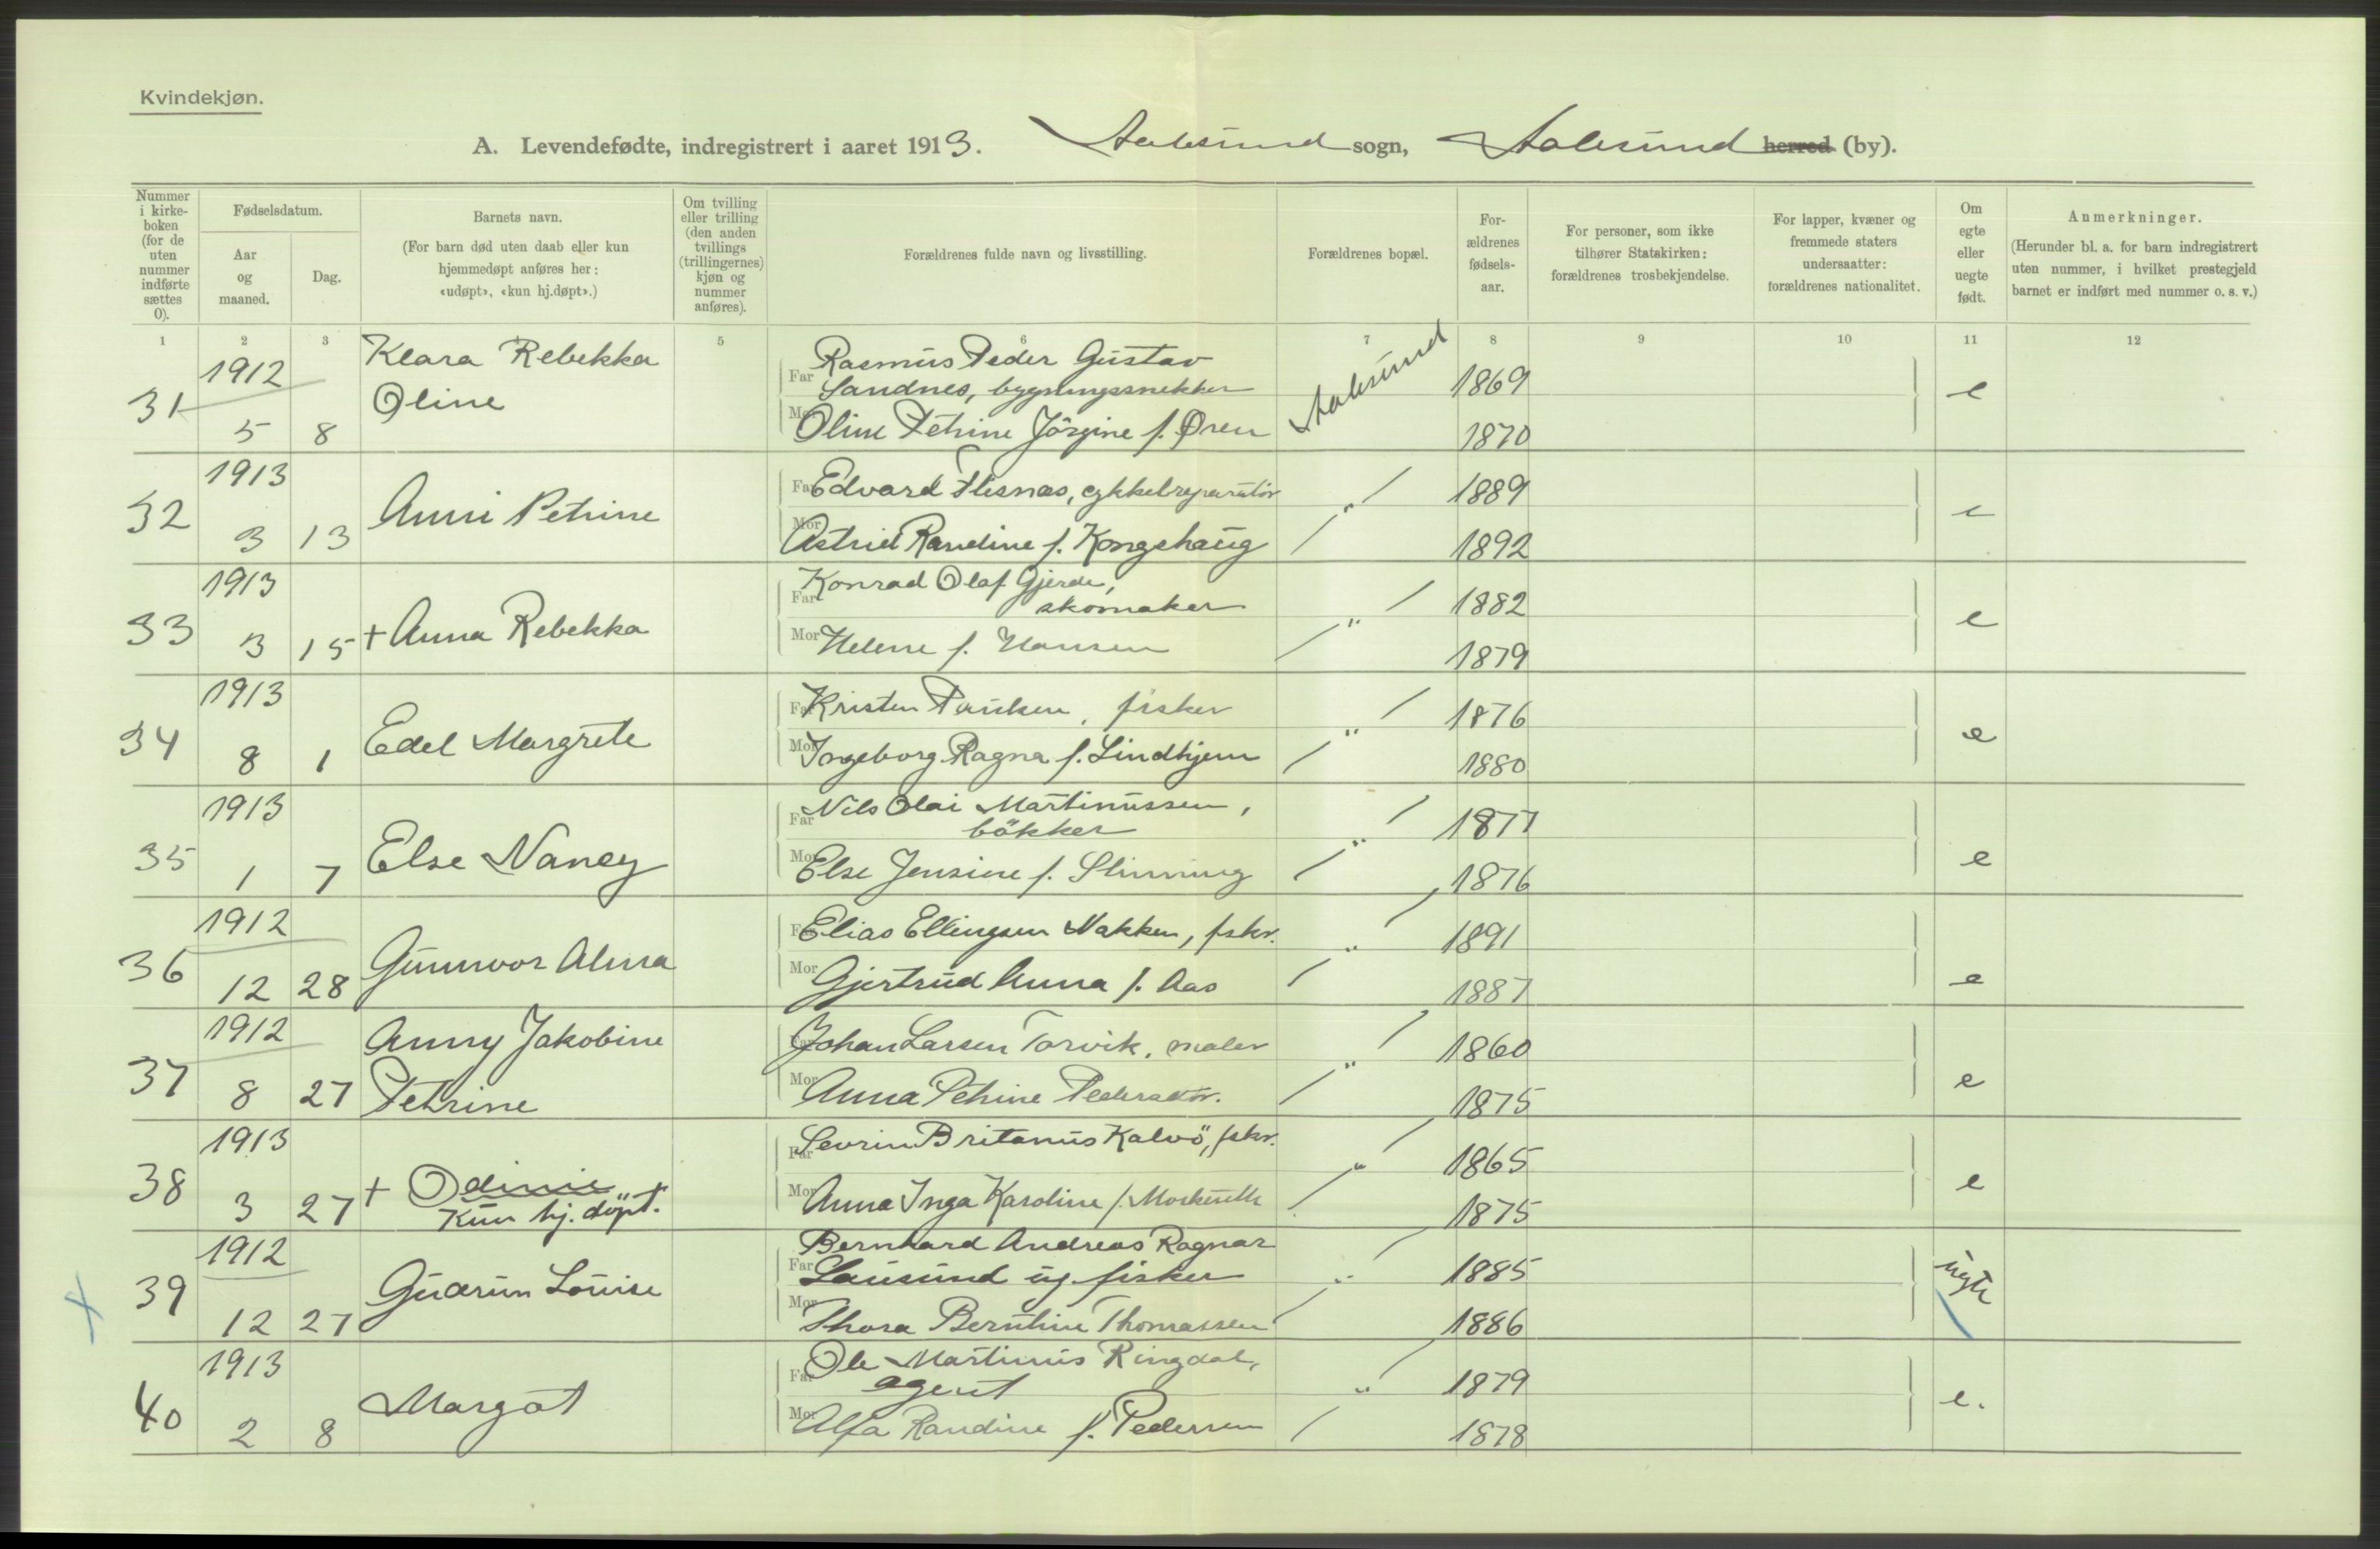 Kvindekjøn.
A. Levendefødte, indregistrert i aaret 1913. Aalesund sogn, Aalesund herred (by).
Nummer i kirke-boken (for de uten nummer indførte sættes 0).
Fødselsdatum.
Aar og maaned.
Dag.
Barnets navn.
(For barn død uten daab eller kun hjemmedøpt anføres her: «udøpt», «kun hj.døpt».)
Om tvilling eller trilling (den anden tvillings (trillingernes) kjøn og nummer anføres).
Forældrenes fulde navn og livsstilling.
Forældrenes bopæl.
For-ældrenes fødsels-aar.
For personer, som ikke tilhører Statskirken: forældrenes trosbekjendelse.
For lapper, kvæner og fremmede staters undersaatter: forældrenes nationalitet.
Om egte eller uegte født.
Anmerkninger.
(Herunder bl. a. for barn indregistrert uten nummer, i hvilket prestegjeld barnet er indført med nummer o. s. v.)
1 2 3 5 6 7 8 9 10 11 12
31 1912 5 8 Klara Rebekka Oline
Far Rasmus Peder Gustav Sandnes, bygningssnekker Aalesund 1869 e
Mor Oline Petrine Jörgine f. Øren 1870
32 1913 3 13 Anni Petrine
Far Edvard Flisnæs, cykkelreparatör " 1889 e
Mor Astrid Randine f. Kongshaug 1892
33 1913 3 15 + Anna Rebekka
Far Konrad Olaf Gjerde, skomaker " 1882 e
Mor Helene f. Hansen 1879
34 1913 8 1 Edel Margrete
Far Kristen Paulsen, fisker " 1876 e
Mor Ingeborg Ragna f. Lindhjem 1880
35 1913 1 7 Else Nancy
Far Nils Olai Martinussen, bökker " 1877 e
Mor Else Jensine f. Slinning 1876
36 1912 12 28 Gunnvor Alma
Far Elias Ellingsen Nakken, fskr. " 1891 e
Mor Gjertrud Anna f. Aas 1887
37 1912 8 27 Anny Jakobine Petrine
Far Johan Larsen Torvik, maler " 1860 e
Mor Anna Petrine Pedersdtr. 1875
38 1913 3 27 + Odinie Kun hj. döpt.
Far Sevrin Britanus Kalvö, fskr. " 1865 e
Mor Anna Inga Karoline f. 1875
39 1912 12 27 Gudrun Louise
Far Bernhard Andreas Ragnar ug. fisker " 1885 uegte
Mor Thora Berntine Thomassen 1886
40 1913 2 8 Margot
Far Ole Martinus Ringdal, agent " 1879 e.
Mor Alfa Randine f. Pedersen 1878